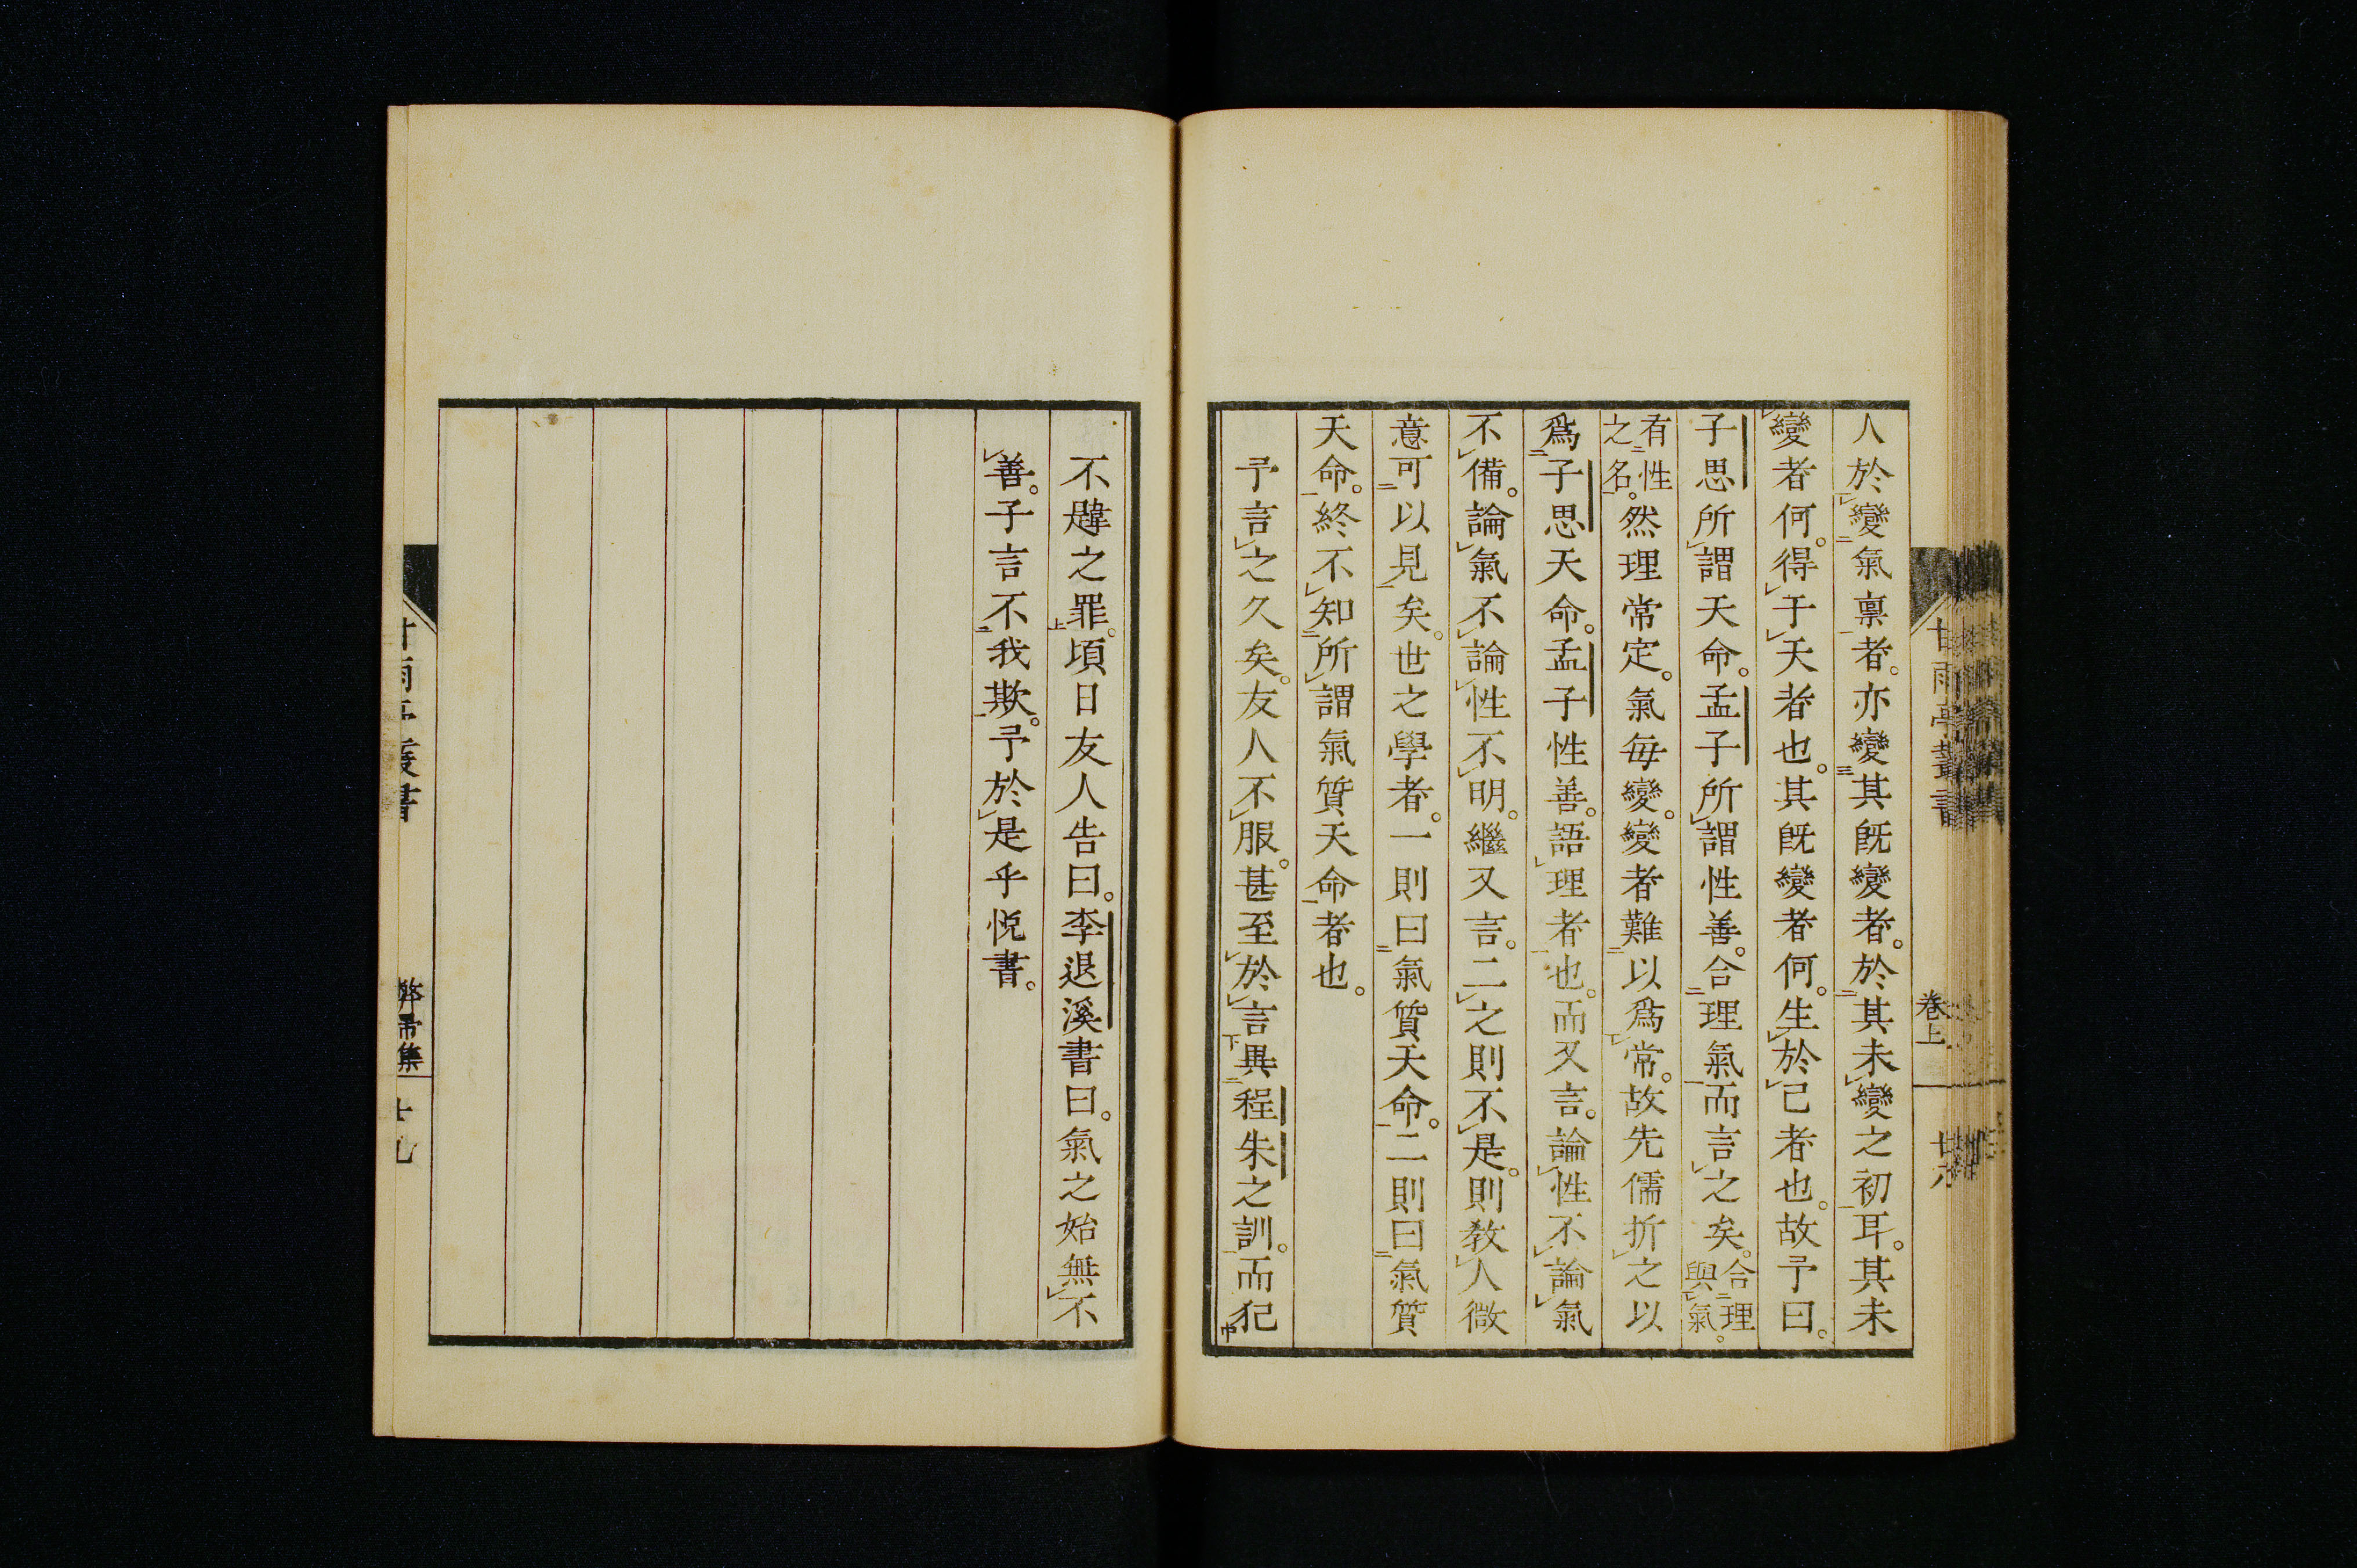 人於變氣稟者。亦變其既變者。於其未變之初耳。其未
變者何。得于天者也。其既變者何。生於己者也。故予曰。
子思所謂天命。孟子所謂性善。合理氣而言之矣。合理與氣。
有性之名。然理常定。氣每變。變者難以爲常。故先儒折之以
爲子思天命。孟子性善。語理者也。而又言。論性不論氣
不備。論氣不論性不明。繼又言。二之則不是。則教人微
意可以見矣。世之學者。一則曰氣質天命。二則曰氣質
天命。終不知所謂氣質天命者也。
予言之久矣。友人不服。甚至於言異程朱之訓。而犯
不韙之罪。頃日友人告曰。李退溪書曰。氣之始無不
善。子言不我欺。予於是乎悅書。
甘雨亭叢書
卷上
叢書
弊帚集